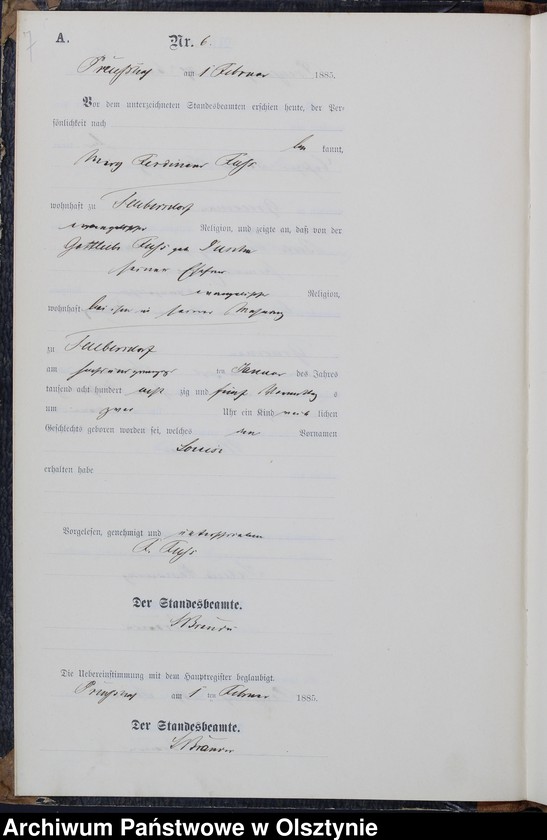 7
A.
Nr. 6
am 1 Februar 1885.
Vor dem unterzeichneten Standesbeamten erschien heute, der Per-
sönlichkeit nach
be kannt,
Ferdinand
wohnhaft zu
evangelischer Religion, und zeigte an, daß von der
geb
seiner Ehefrau
evangelischer Religion,
wohnhaft bei ihm in seiner Wohnung
zu
am sechsundzwanzigsten ten Januar des Jahres
tausend acht hundert acht zig und fünf Vormittag s
um zwei Uhr ein Kind weib lichen
Geschlechts geboren worden sei, welches den Vornamen
Louise
erhalten habe
Vorgelesen, genehmigt und unterschrieben
F.
Der Standesbeamte.
Die Uebereinstimmung mit dem Hauptregister beglaubigt.
am 1 ten Februar 1885.
Der Standesbeamte.
Archiwum Państwowe w Olsztynie